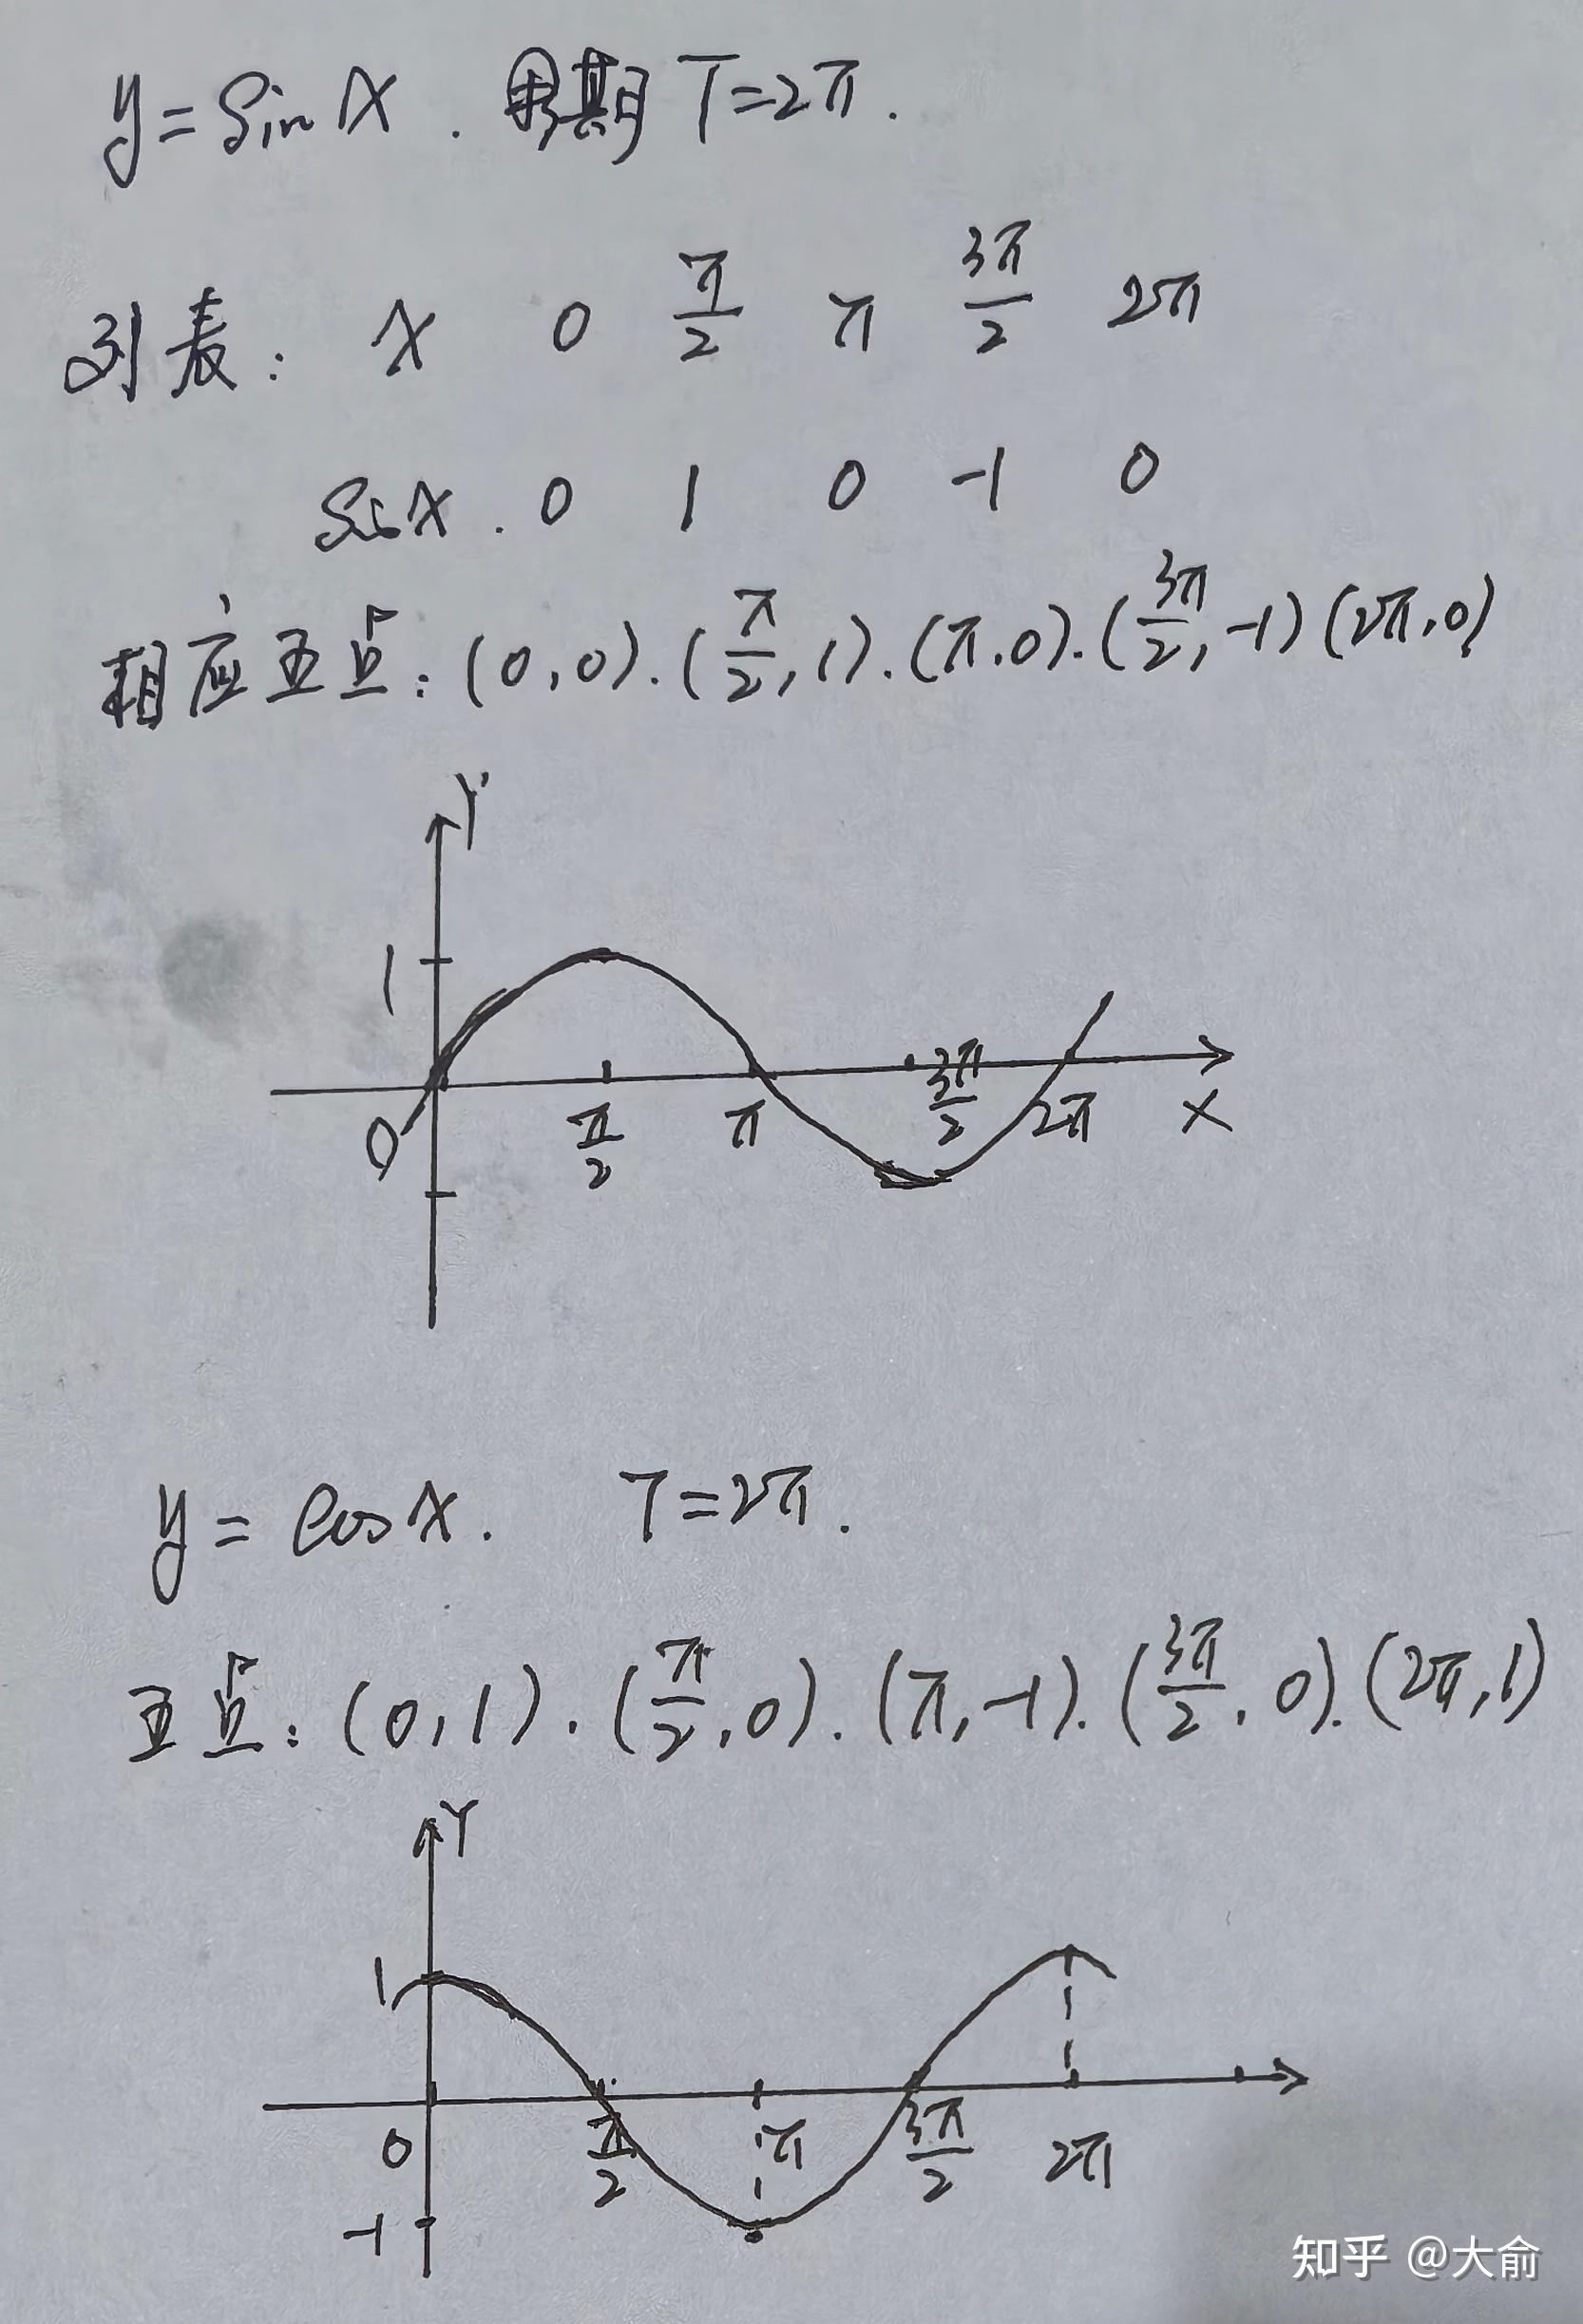 y=sinx. 周期 T=2π.
列表: x 0 π/2 π 3π/2 2π
sinx. 0 1 0 -1 0
相应五点: (0,0).(π/2,1).(π.0).(3π/2,-1)(2π.0)
Y
1
0 π/2 π 3π/2 2π X
y=cosx. T=2π.
五点: (0,1).(π/2,0).(π,-1).(3π/2,0).(2π,1)
Y
1
0 π/2 π 3π/2 2π
-1
知乎 @大俞